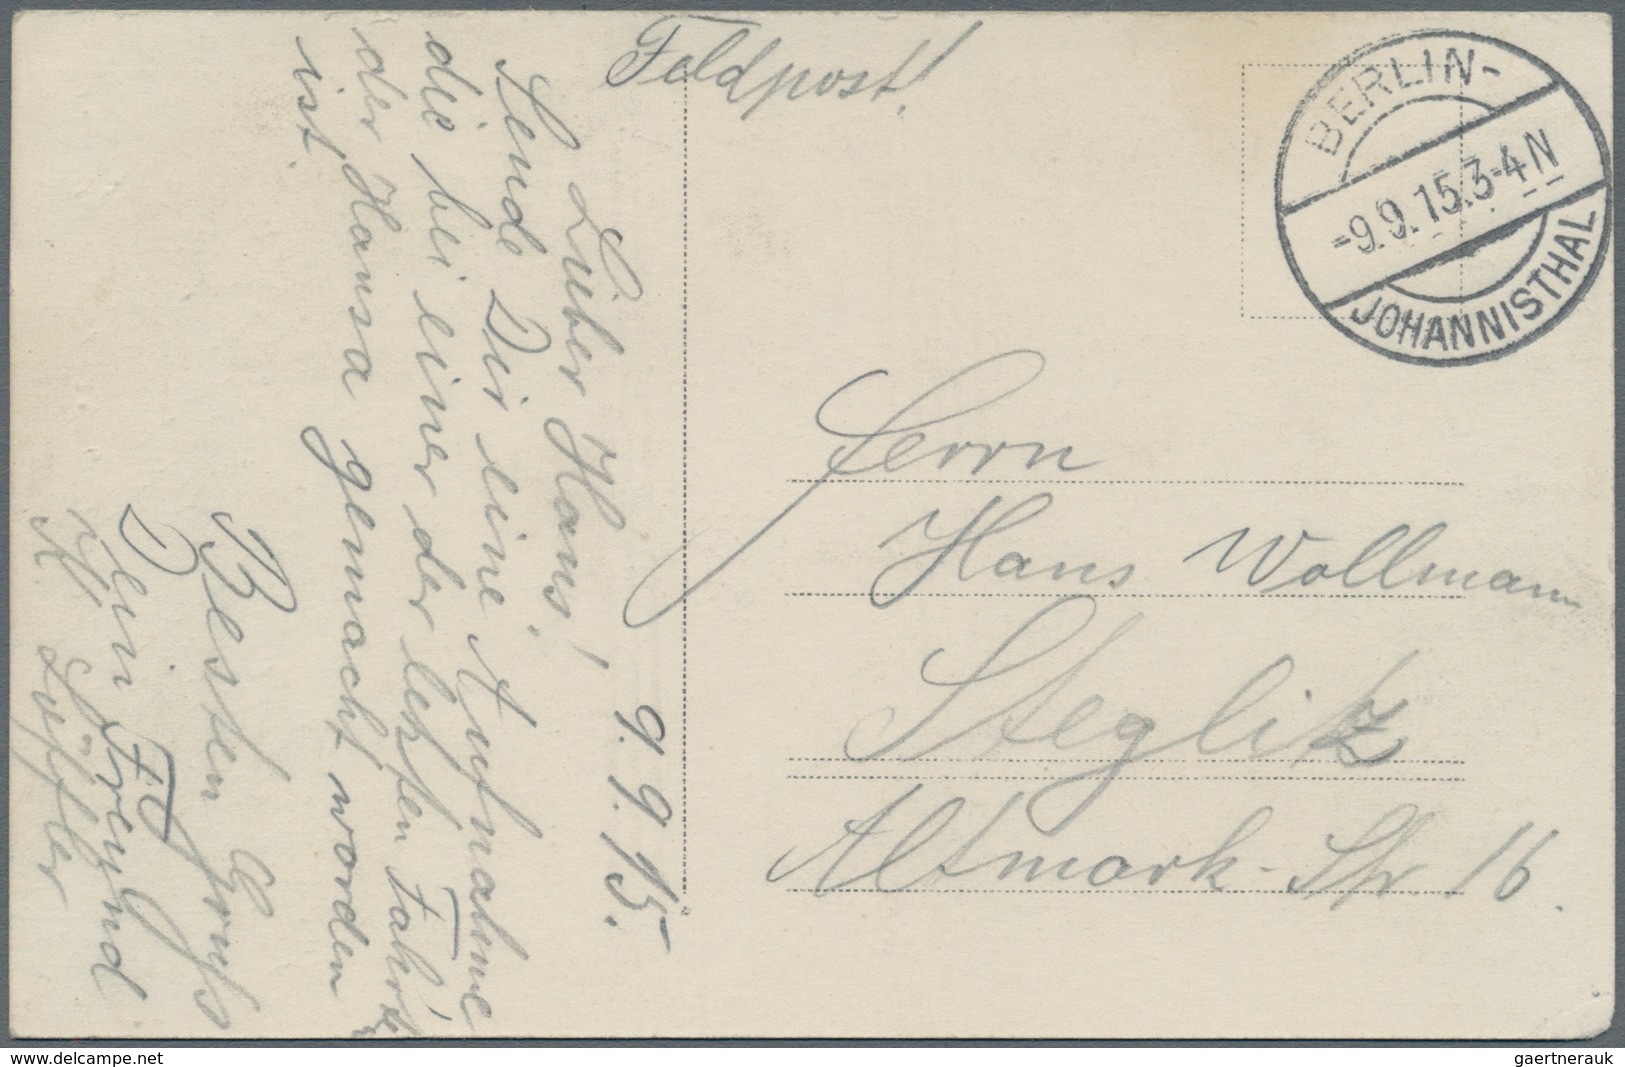 Feldpost!
BERLIN-
-9.9.15.3-4N
JOHANNISTHAL
9.9.15.
Lieber Hans!
Sende Dir eine Aufnahme
die bei einer der letzten Fahrt
der Hansa gemacht worden
ist.
Besten Gruß
Dein Freund
Löffler
Herrn
Hans Wollmann
Steglitz
Altmark-Str. 16.
www.delcampe.net
gaertnerauk@web.de